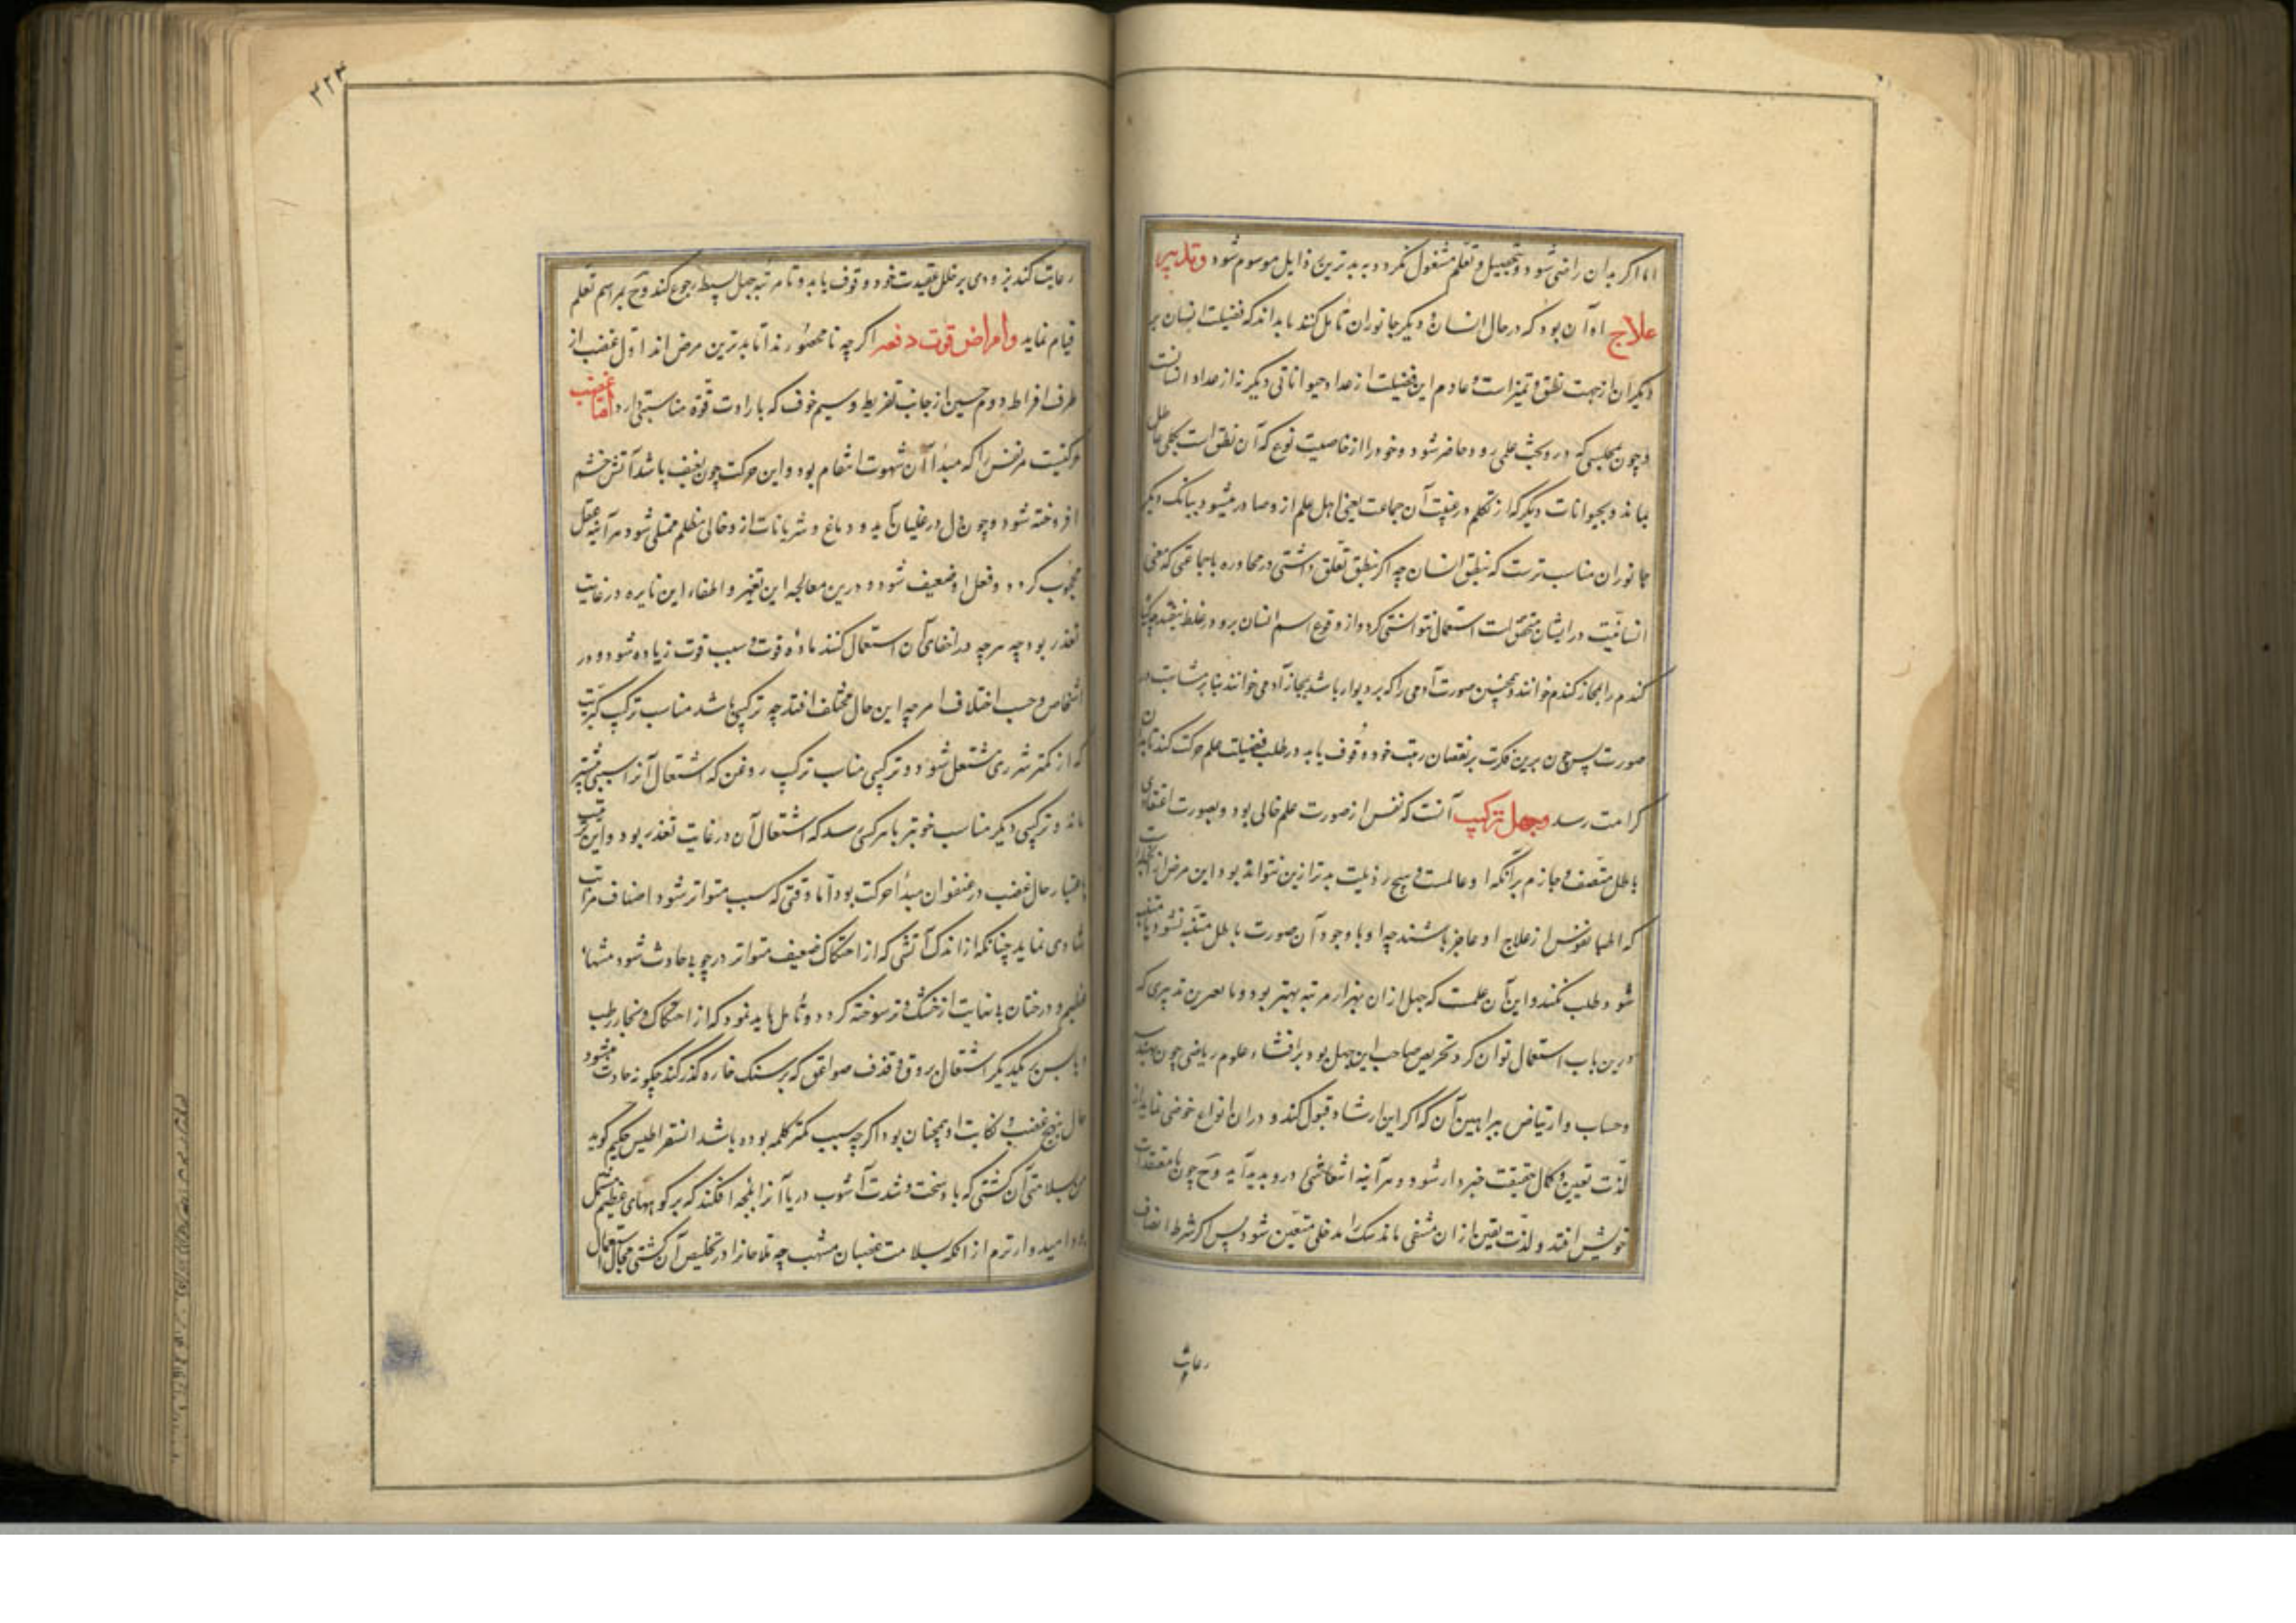 اما اگر بدان راضی شود و بتحصیل و تعلم مشغول نگردد به بدترین رذایل موسوم شود و تدبیر
علاج او آن بود که در حال انسان و دیگر جانوران تأمل کند تا بداند که فضیلت انسان بر
دیگران از جهت نطق و تمیز است و عادم این فضیلت از عداد حیواناتی دیگر نه از عداد انسانست
و چون بمجلسی که درو بحث علمی رود حاضر شود و خود را از خاصیت نوع که آن نطق است بکلی عاطل
یابد و بحیوانات دیگر که از تکلم در غیبت آن جماعت یعنی اهل علم ازو صادر میشود ببانگ دیگر
جانوران مناسب ترست که بنطق انسان چه اگر بنطق تعلق داشتی در محاوره با جماعتی که معنی
انسانیت در ایشان متحقق است استعمال توانستی کرد و از وقوع اسم انسان برو در غلط نیفتد چه گیاه
گندم را بمجاز گندم خوانند و همچنین صورت آدمی را که بر دیوار باشد بمجاز آدمی خوانند بنا بر مشابهت در
صورت پس چون برین فکرت بر نقصان رتبت خود وقوف یابد در طلب فضیلت علم حرکت کند تا بدان
کرامت رسد و جهل ترکیب آنست که نفس از صورت علم خالی بود و بصورت اعتقادی
باطل متصف و جازم بر آنکه او عالمست و هیچ رذیلت بدتر ازین نتواند بود و این مرض از
که اطبا نفوس از علاج او عاجز باشند چه او با وجود آن صورت باطل متنبه نشود و تا متنبه
شود طلب نکند و این آن علمست که جهل از آن بهزار مرتبه بهتر بود و نافعترین تدبیری که
درین باب استعمال توان کرد تحریص صاحب این جهل بود بر اقتناء علوم ریاضی چون هندسه
و حساب و ارتیاض ببراهین آن که اگر این ارشاد قبول کند و در آن انواع خوضی نماید از
لذت یقین و کمال حقیقت خبردار شود و هر آینه انتعاشی درو پدید آید و ح چون با معتقدات
خویش افتد و لذت یقین از آن منتفی یابد شک را مدخلی متعین شود پس اگر شرط انصاف
رعایت
۲۲۴
رعایت کند بزودی بر خلل عقیدت خود وقوف یابد و تا مرتبه جهل بسیط رجوع کند و ح بمراسم تعلم
قیام نماید و امراض قوت دفعه اگرچه نامحصورند اما بدترین مرض اند اول غضب از
طرف افراط دوم جبن از جانب تفریط و سیم خوف که با رداءت قوة مناسبتی دارد اما غضب
حرکتیست مر نفس را که مبدأ آن شهوت انتقام بود و این حرکت چون بعنف باشد آتش خشم
افروخته شود و چون دل در غلیان آید و دماغ و شریانات از دخانی مظلم ممتلی شود هر آینه عقل
محجوب گردد و فعل او ضعیف شود و درین معالجه این تغیر و اطفاء این نایره در غایت
تعذر بود چه هرچه در اطفای آن استعمال کنند ماده قوت و سبب قوت زیاده شود و در
اشخاص و حسب اختلاف امزجه این حال مختلف افتد چه ترکیبی باشد مناسب ترکیب کبریت
که از کمتر شرری مشتعل شود و ترکیبی مناسب ترکیب روغن که اشتعال آنرا سببی بیشتر
باید و ترکیبی دیگر مناسب چوب تر تا بمرکبی رسد که اشتعال آن در غایت تعذر بود و این ترتیب
باعتبار حال غضب در عنفوان مبدأ حرکت بود اما وقتی که سبب متواتر شود اصناف مراتب
متساوی نماید چنانکه از اندک آتشی که از احتکاک ضعیف متواتر در چوبی حادث شود مشتها
عظیم و درختان بی نهایت از خشک و تر سوخته گردد و تأمل باید نمود که از احتکاک دو بخار رطب
و یابس بر یکدیگر اشتعال بروق و قذف صواعق که بر سنگ خاره گذر کند چگونه حادث میشود
حال تهیج غضب و نکایت او همچنان بود اگرچه سبب کمتر کلمه بوده باشد انسقراطیس حکیم گوید
من بسلامتی آن کشتی که باد سخت و شدت آشوب دریا آنرا بلجه افکند که بر کوههای عظیم مشتمل
بود امیدوارترم از آنکه بسلامت غضبان ملتهب چه ملاحانرا در تخلیص آن کشتی مجال استعمال